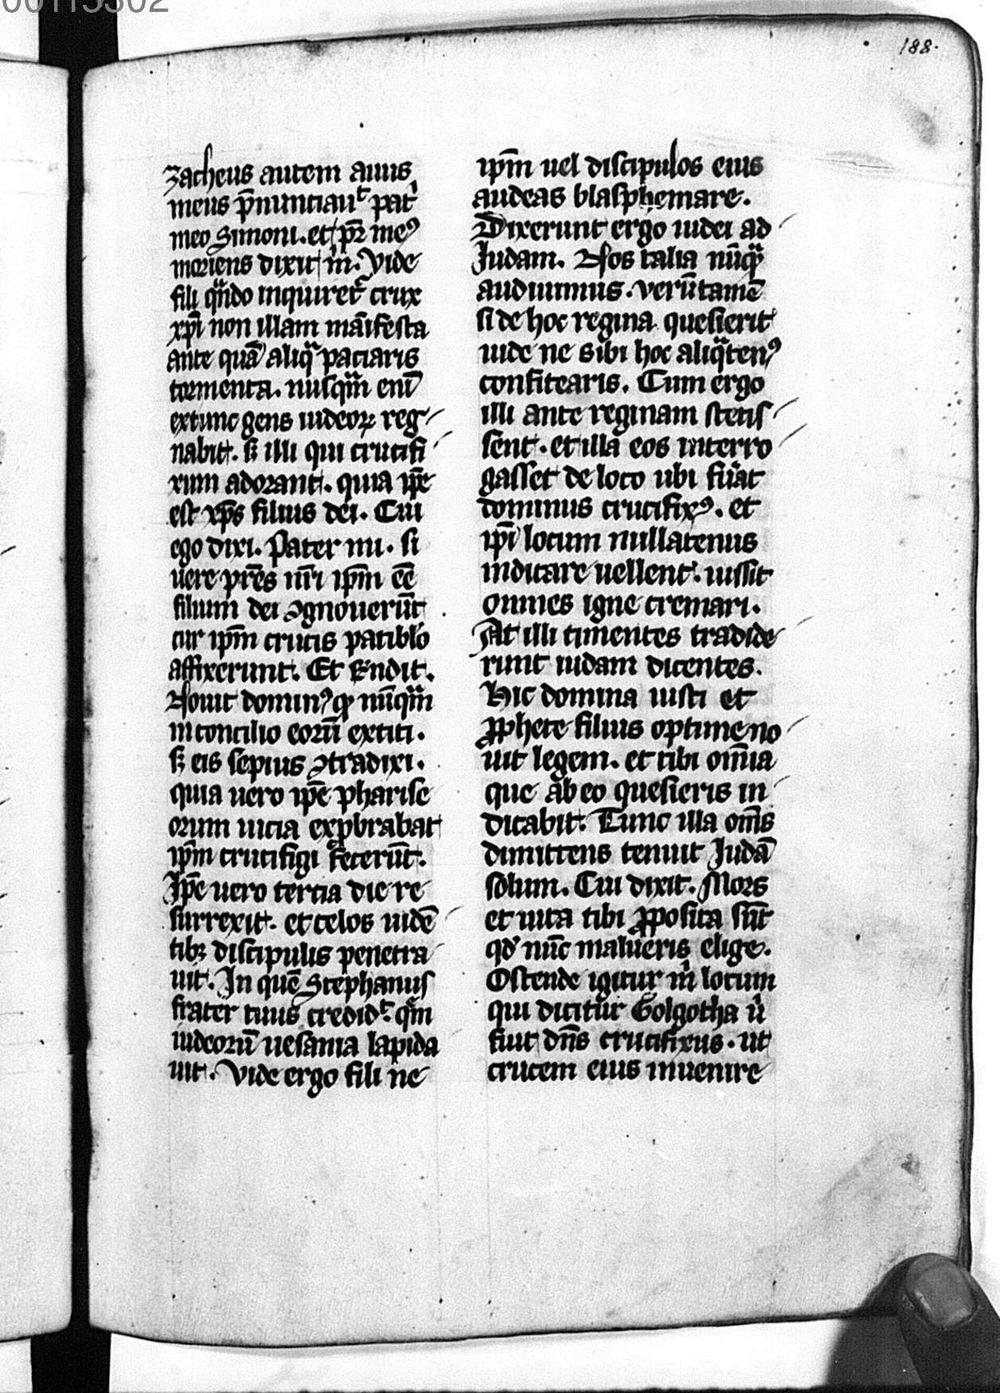 00115302
188.
zacheus autem auus
meus p̄nunciau͛ pat͛
meo Simoni. et pr̄ meꝰ
moriens dixit m̄. Vide
fili qn̄do inquiret͛ crux
xp̄i non illam manifesta
ante quā aliq̄ paciaris
tormenta. nusqm̄ eni
extunc gens iudeoꝝ reg
nabit. sꝫ illi qui crucifi
xum adorant. quia ip̄e
est xp̄s filius dei. Cui
ego dixi. Pater mi. si
uere pr̄es nr̄i ip̄m ēē
filium dei ꝯgnouerūt
cur ip̄m crucis patiblo
affixerunt. Et Rndit.
Nouit dominꝰ ꝙ nūqm̄
in concilio eorū extiti.
sꝫ eis sepius ꝯtradixi.
quia uero ip̄e pharise
orum uicia exꝓbrabat
ip̄m crucifigi fecerūt.
Ip̄e uero tercia die re
surrexit. et celos uidē
tibꝫ discipulis penetra
uit. In quē Stephanus
frater tuus credid͛. qm̄
iudeorū uesania lapida
uit. Vide ergo fili ne
ip̄m uel discipulos eius
audeas blasphemare.
Dixerunt ergo iudei ad
Iudam. Nos talia nūq̄
audiuimus. uerūtamē
si de hoc regina quesierit
uide ne sibi hoc aliq̄tenꝰ
confitearis. Cum ergo
illi ante reginam stetis
sent. et illa eos interro
gasset de loco ubi fūat
dominus crucifixꝰ. et
ip̄i locum nullatenus
indicare uellent. iussit
omnes igne cremari.
At illi timentes tradide
runt iudam dicentes.
Hic domina iusti et
ꝓphete filius optime no
uit legem. et tibi om̄ia
que ab eo quesieris in
dicabit. Tunc illa om̄s
dimittens tenuit Iudā
solum. Cui dixit. Mors
et uita tibi ꝓposita sūt
qd̓ nūc malueris elige.
Ostende igitur m̄ locum
qui dicitur Golgotha u̓
fuit dn̄s crucifixus. ut
crucem eius inuenire